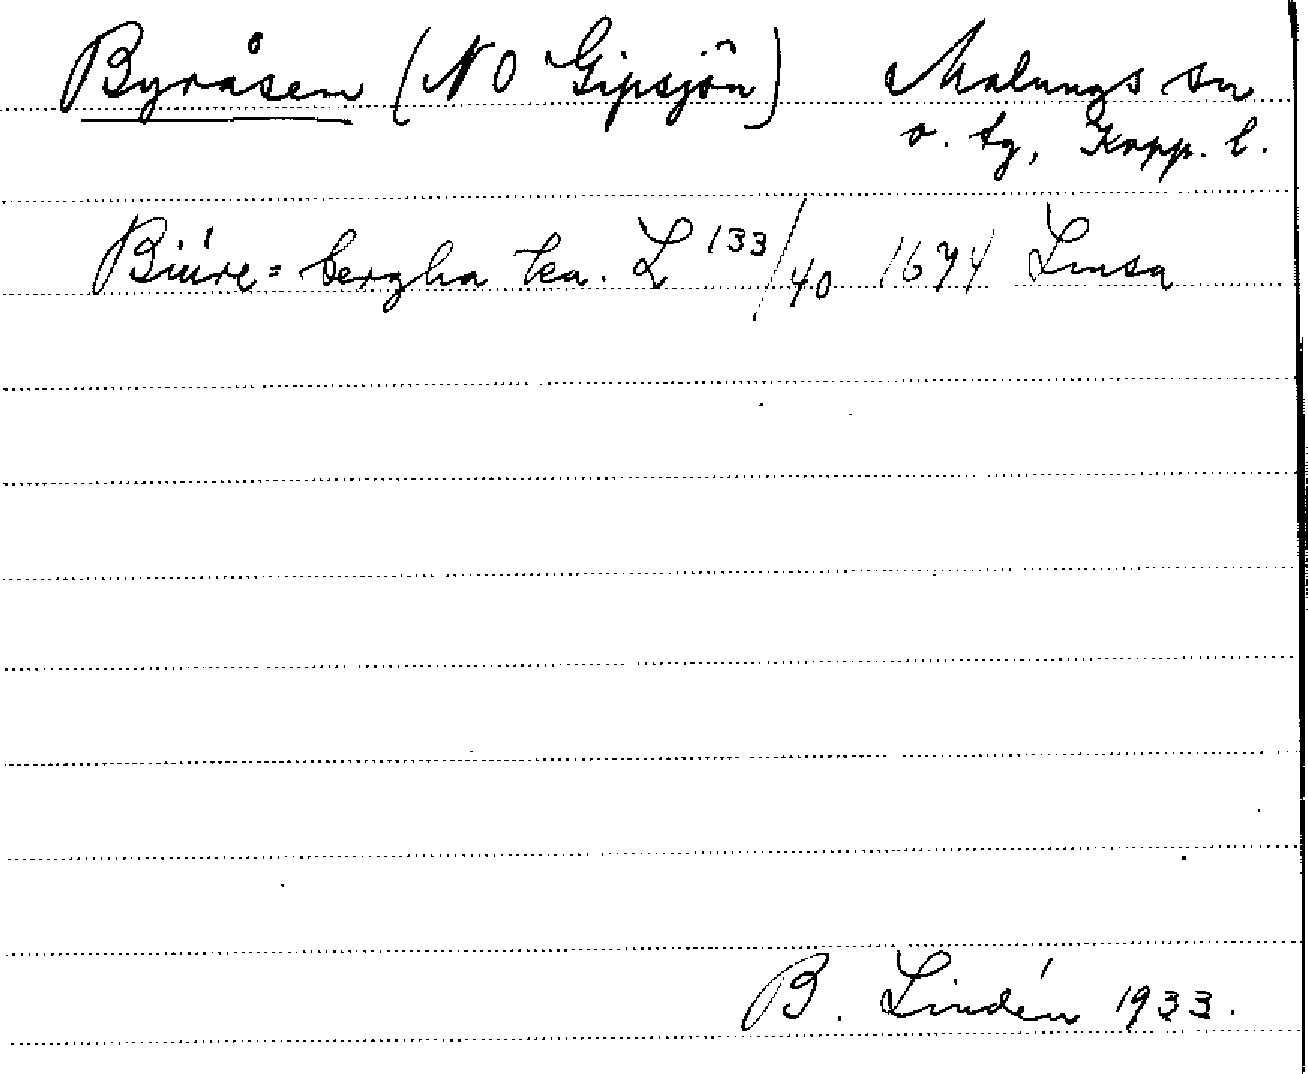 Byråsen (NO Gipsjön) Malungs sn
o. tg, Kopp. l.
Biúre= bergha ka. L 133/40 1674 Lmsa
B. Lindén 1933.